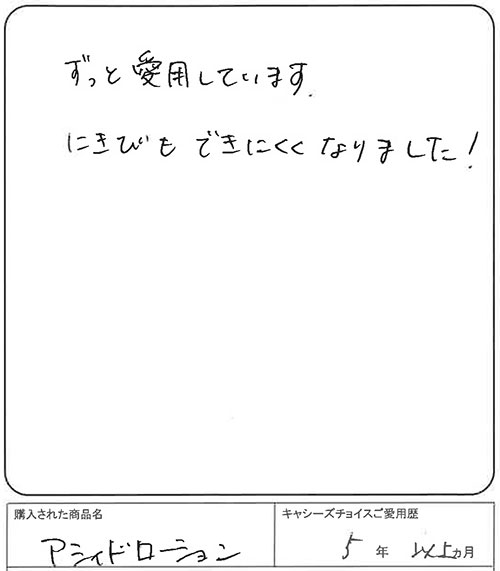 ずっと愛用しています.
にきびも できにくくなりました!
購入された商品名
アシィドローション
キャシーズチョイスご愛用歴
5 年 以上 ヵ月